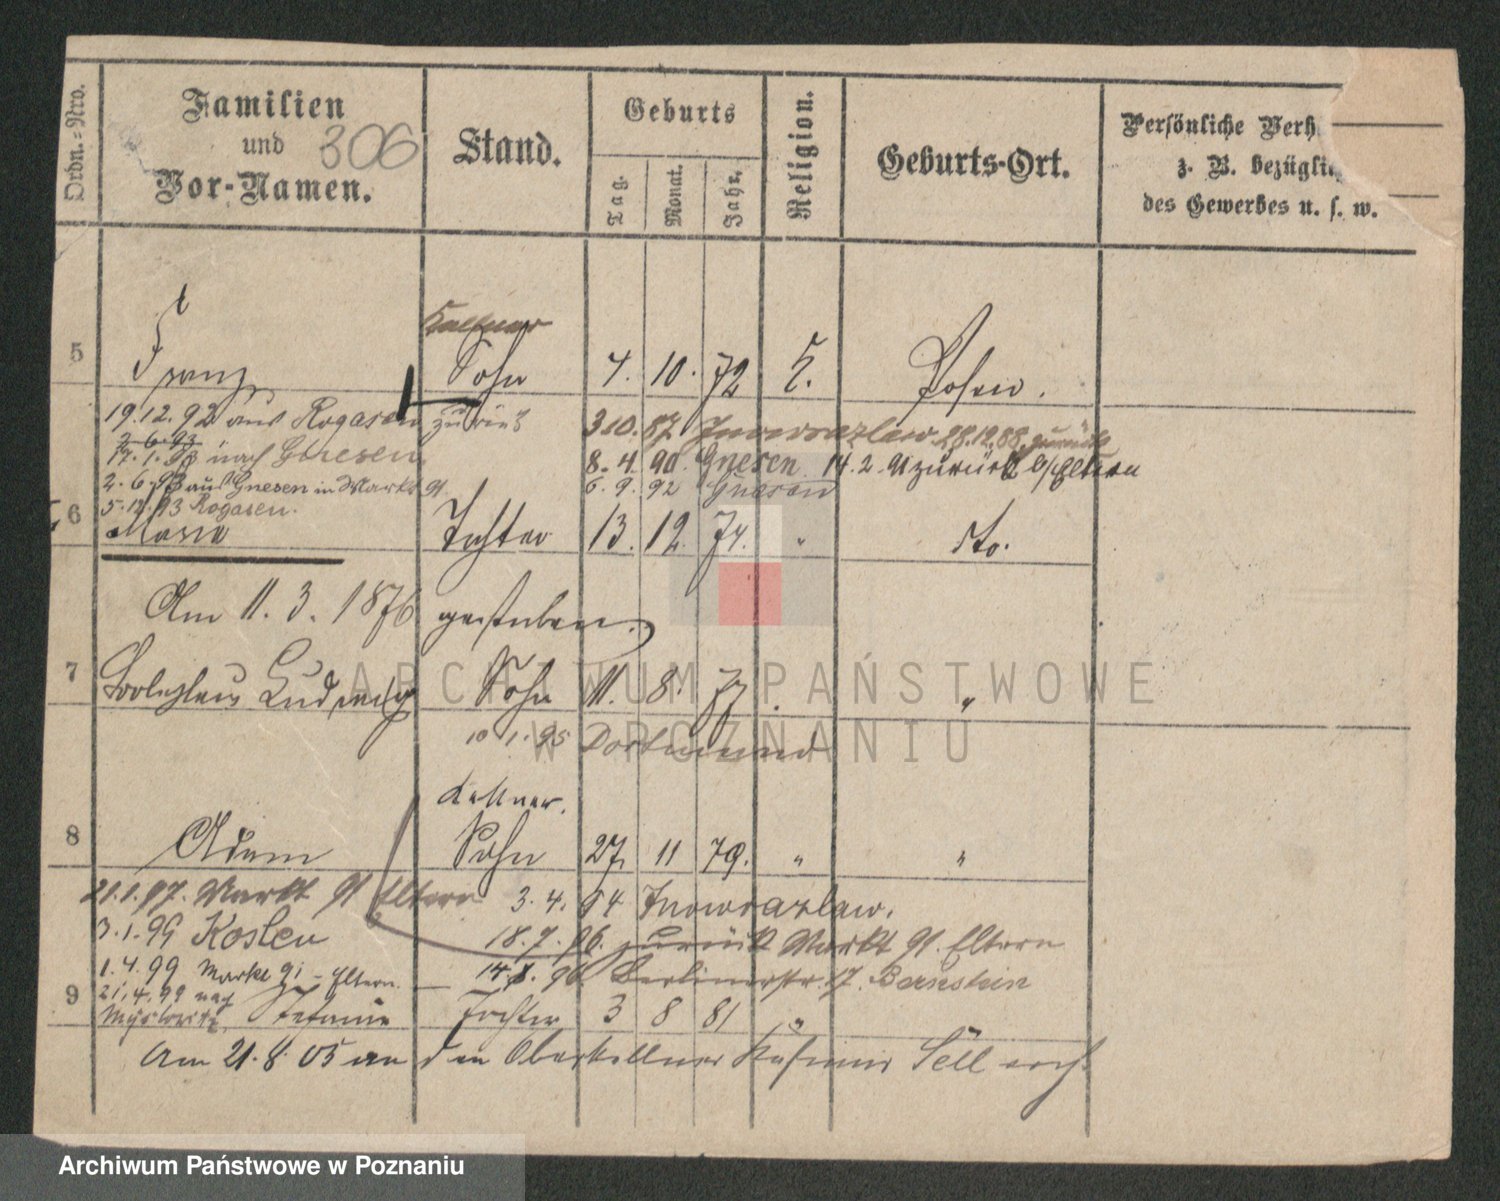 Ordn.=Nro.
Familien
und
Vor-Namen.
306
Stand.
Geburts
Tag.
Monat.
Jahr.
Religion.
Geburts-Ort.
Persönliche Verh
z. B. bezüglic
des Gewerbes u. s. w.
Kellner
5 Franz Sohn 4. 10. 72 k. Posen.
19.12.92 aus Rogasen zurück 3.10.87 Inowrazlaw 28.12.88 zurück
2.6.93
17.1.93 nach Gnesen 8.4.90 Gnesen 14.2.91 zurück b/Eltern
2.6.93 aus Gnesen in Markt 91. 6.9.92 Gnesen
5.12.93 Rogasen.
6 Maria Tochter 13. 12. 74. " dto.
Am 11. 3. 1876 gestorben.
7 Boleslaus Ludwig Sohn 11. 8. 77. "
10 1. 95 Dortmund
Kellner.
8 Adam Sohn 27. 11 79. " "
21.1.97. Markt 91 Eltern 3. 4. 94 Inowrazlaw.
3.1.99 Kosten 18.7.96. zurück Markt 91. Eltern
1.4.99 Markt 91 - Eltern. 14.8.96 Berlinerstr. 17. Bernstein
21.4.99 nach
Myslowitz.
9 Stefanie Tochter 3 8 81 "
Am 21.8.05 an den Oberkellner Kasimir Sell verh.
ARCHIWUM PAŃSTWOWE
W POZNANIU
Archiwum Państwowe w Poznaniu